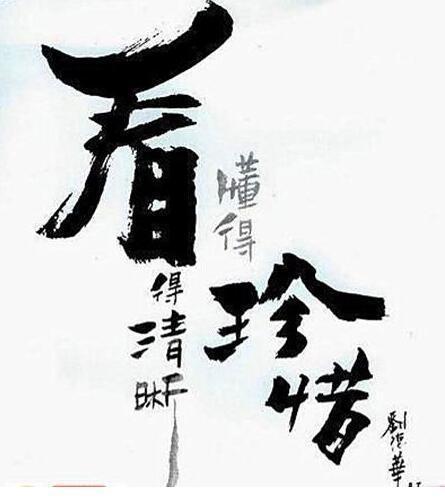 看得清晰
懂得
珍惜
劉德華